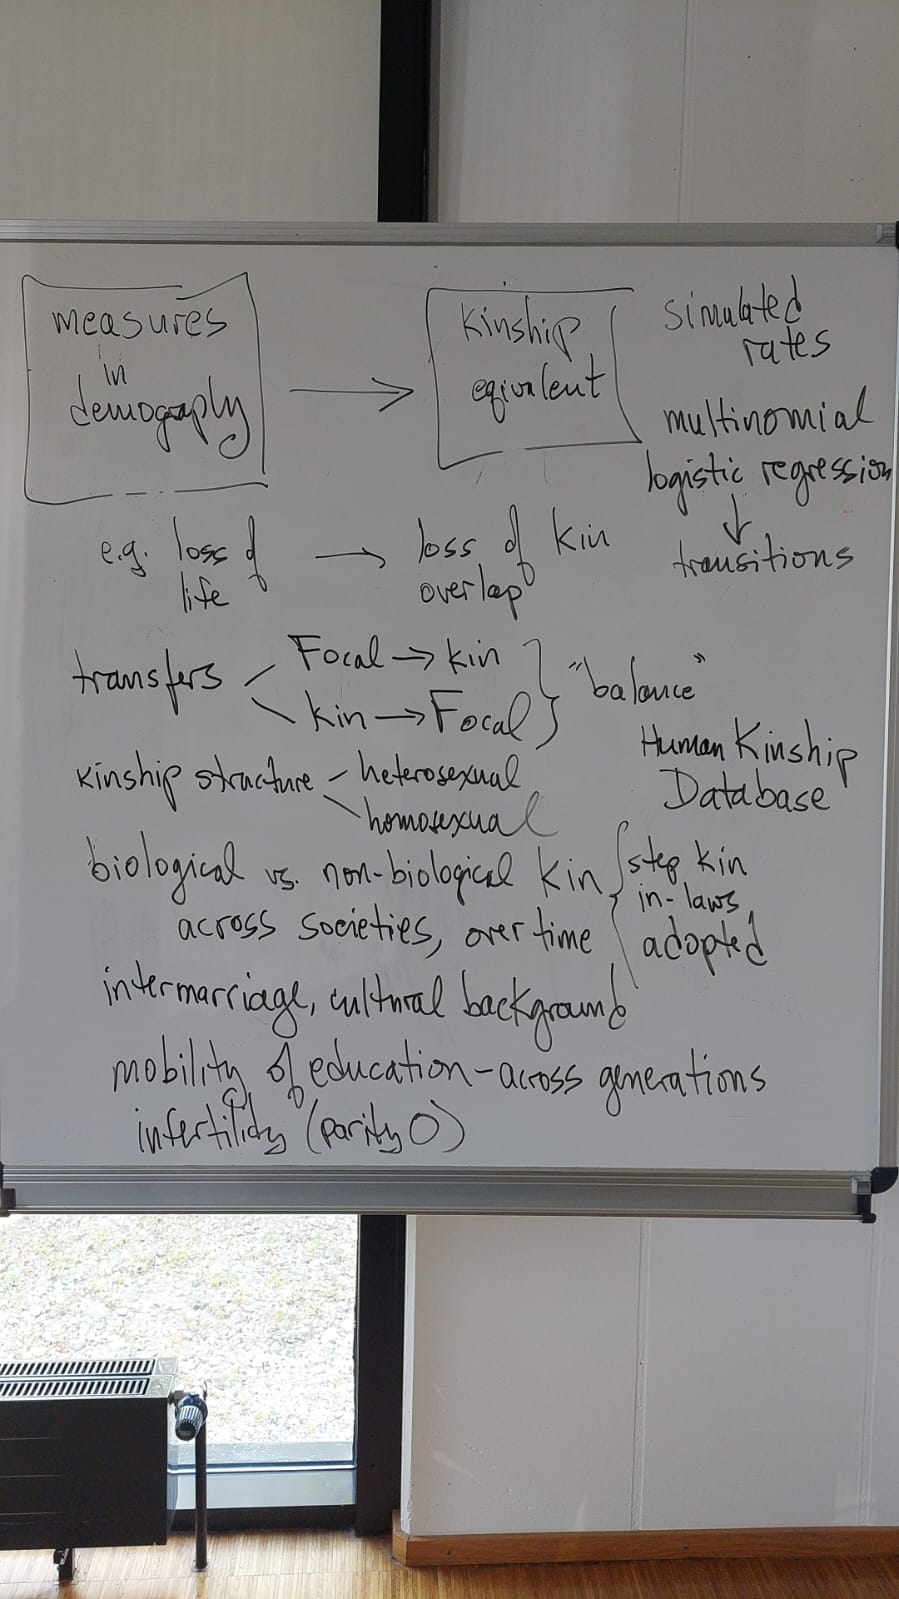 measures
in
demography
→
Kinship
eqivalent
simulated
rates
multinomial
logistic regression
↓
transitions
e.g. loss of
life
→
loss of kin
overlap
transfers
Focal → kin
kin → Focal
"balance"
Human Kinship
Database
kinship structure - heterosexual
homosexual
biological vs. non-biological kin
across societies, over time
step kin
in-laws
adopted
intermarriage, cultural background
mobility of education - across generations
infertility (parity 0)